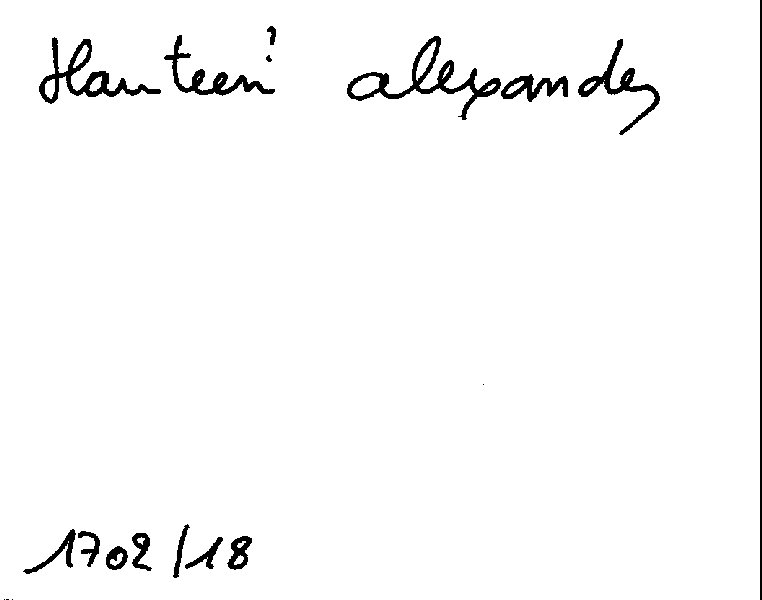 Hauteen' alexander
1702/18